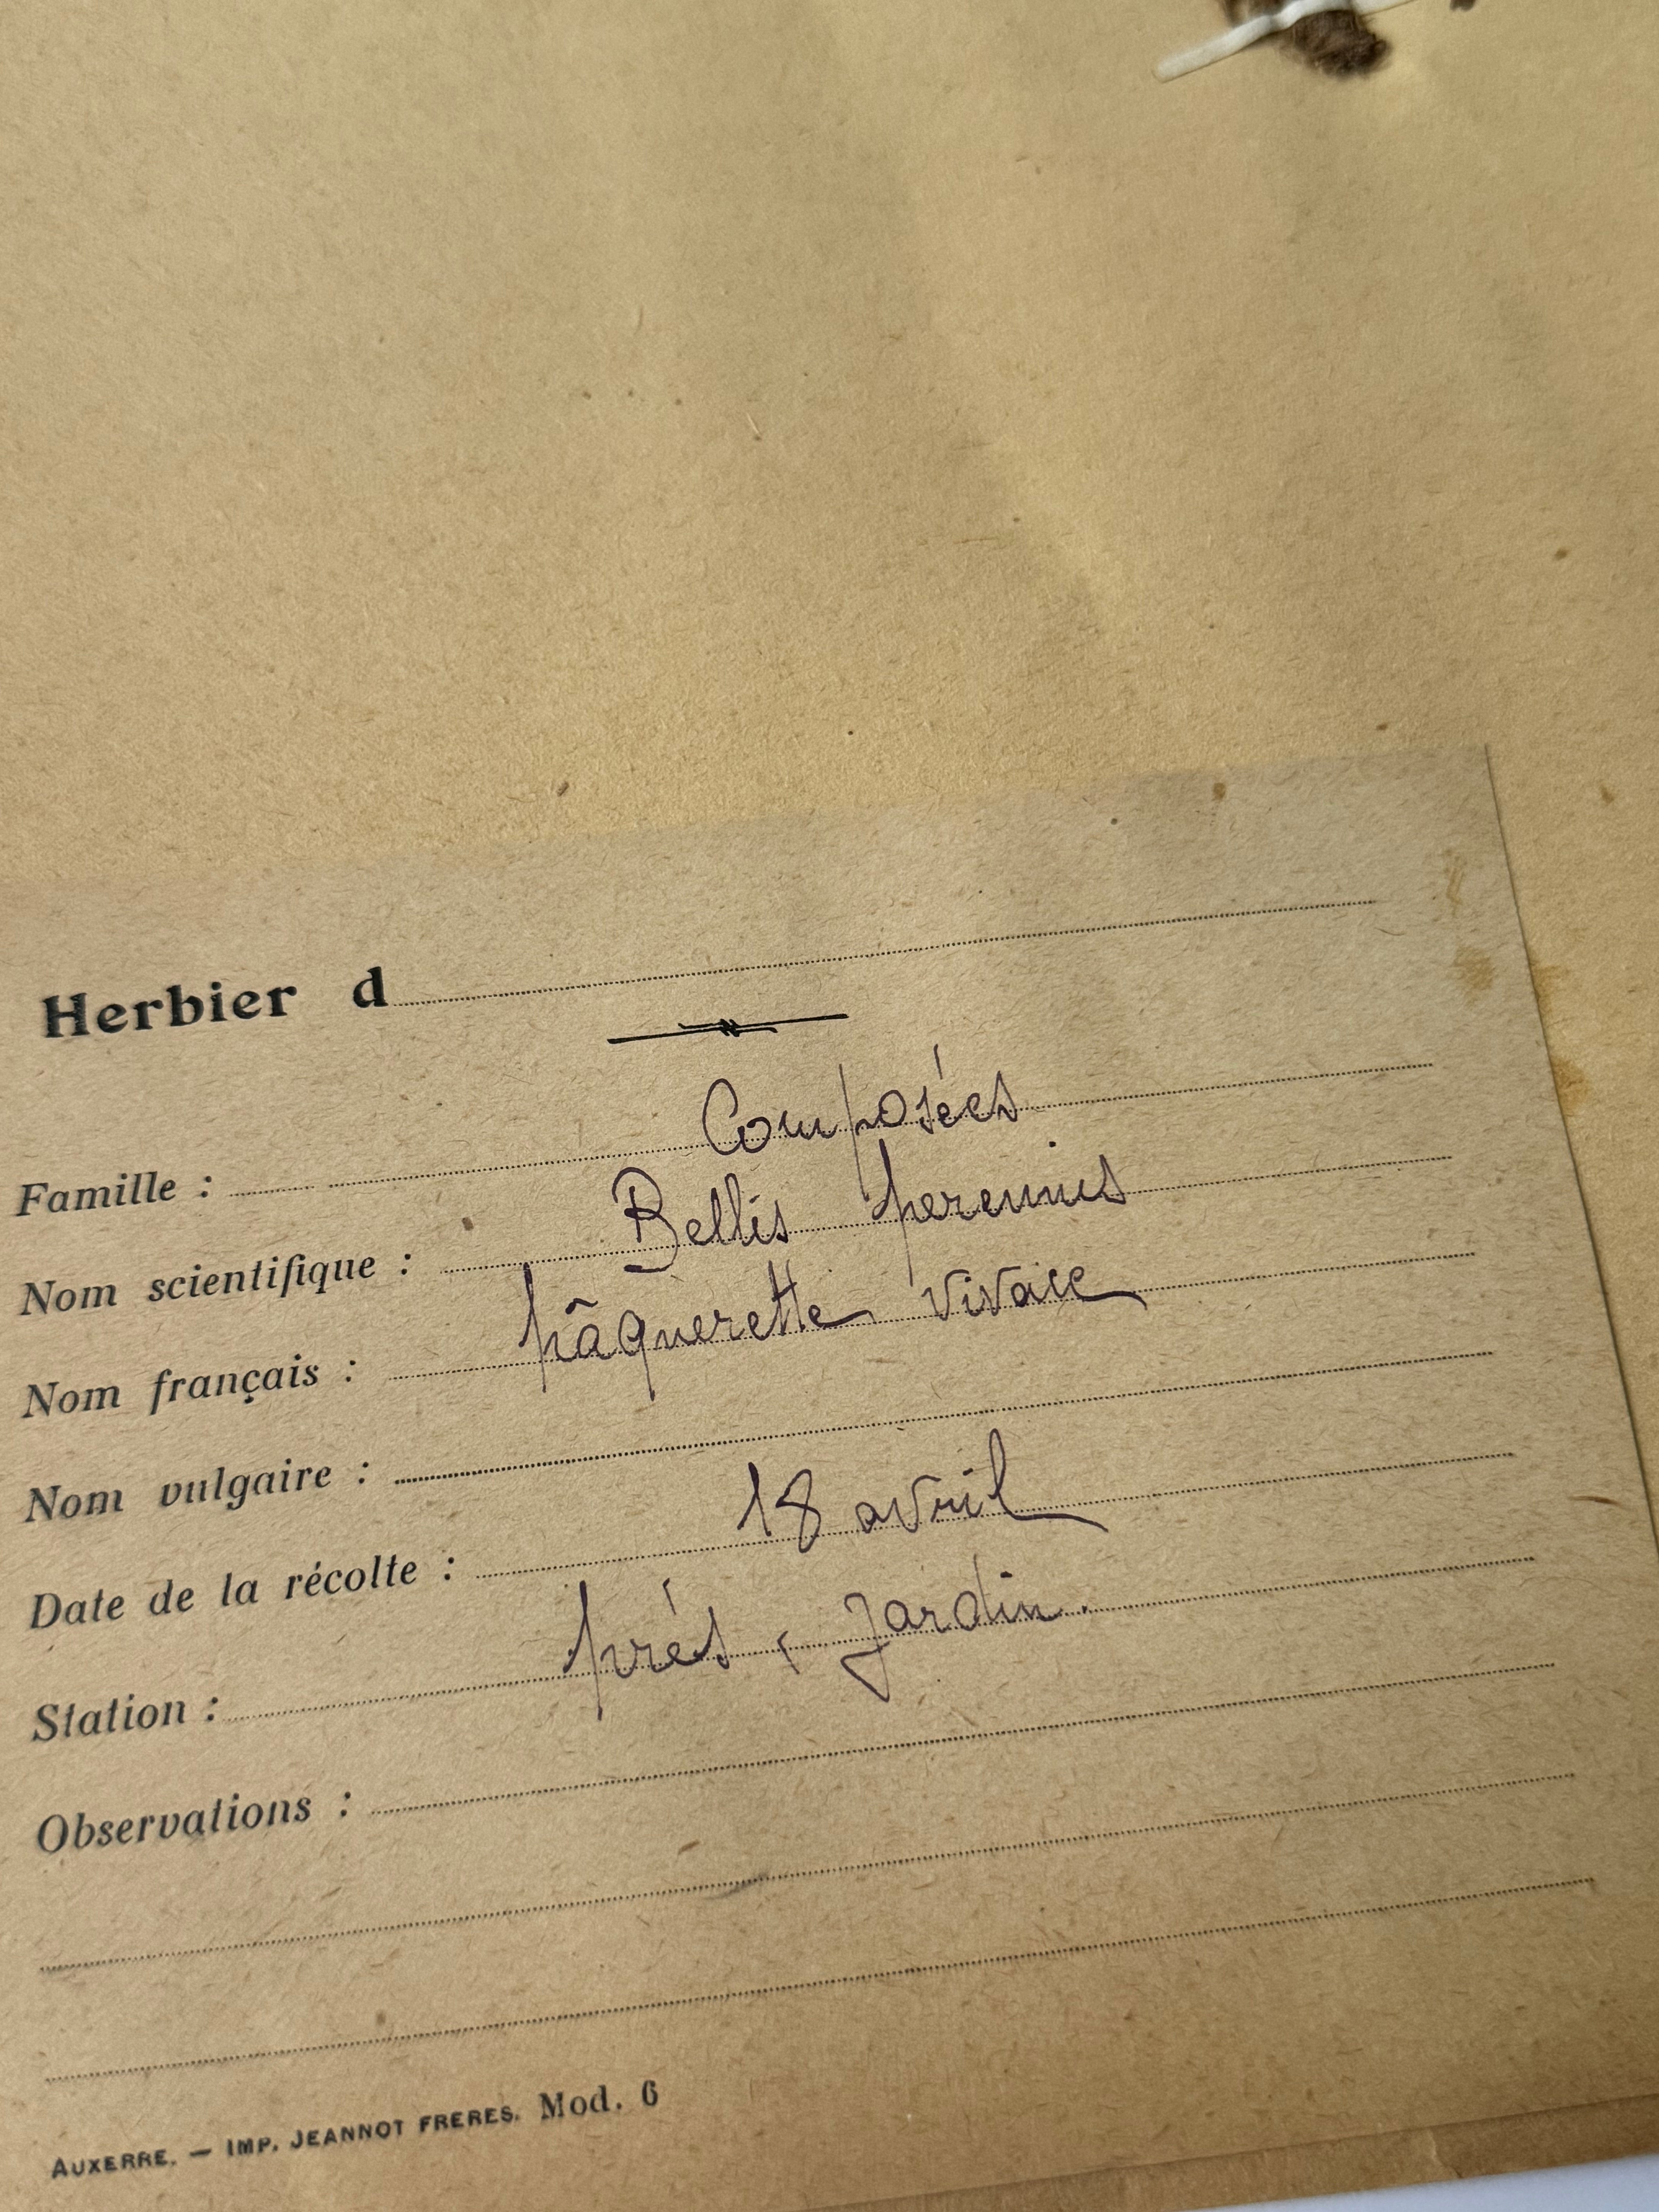 Herbier d
Famille : Composées
Nom scientifique : Bellis perennis
Nom français : pâquerette vivace
Nom vulgaire :
Date de la récolte : 18 avril
Station : prés, Jardin.
Observations :
AUXERRE. — IMP. JEANNOT FRERES. Mod. 6